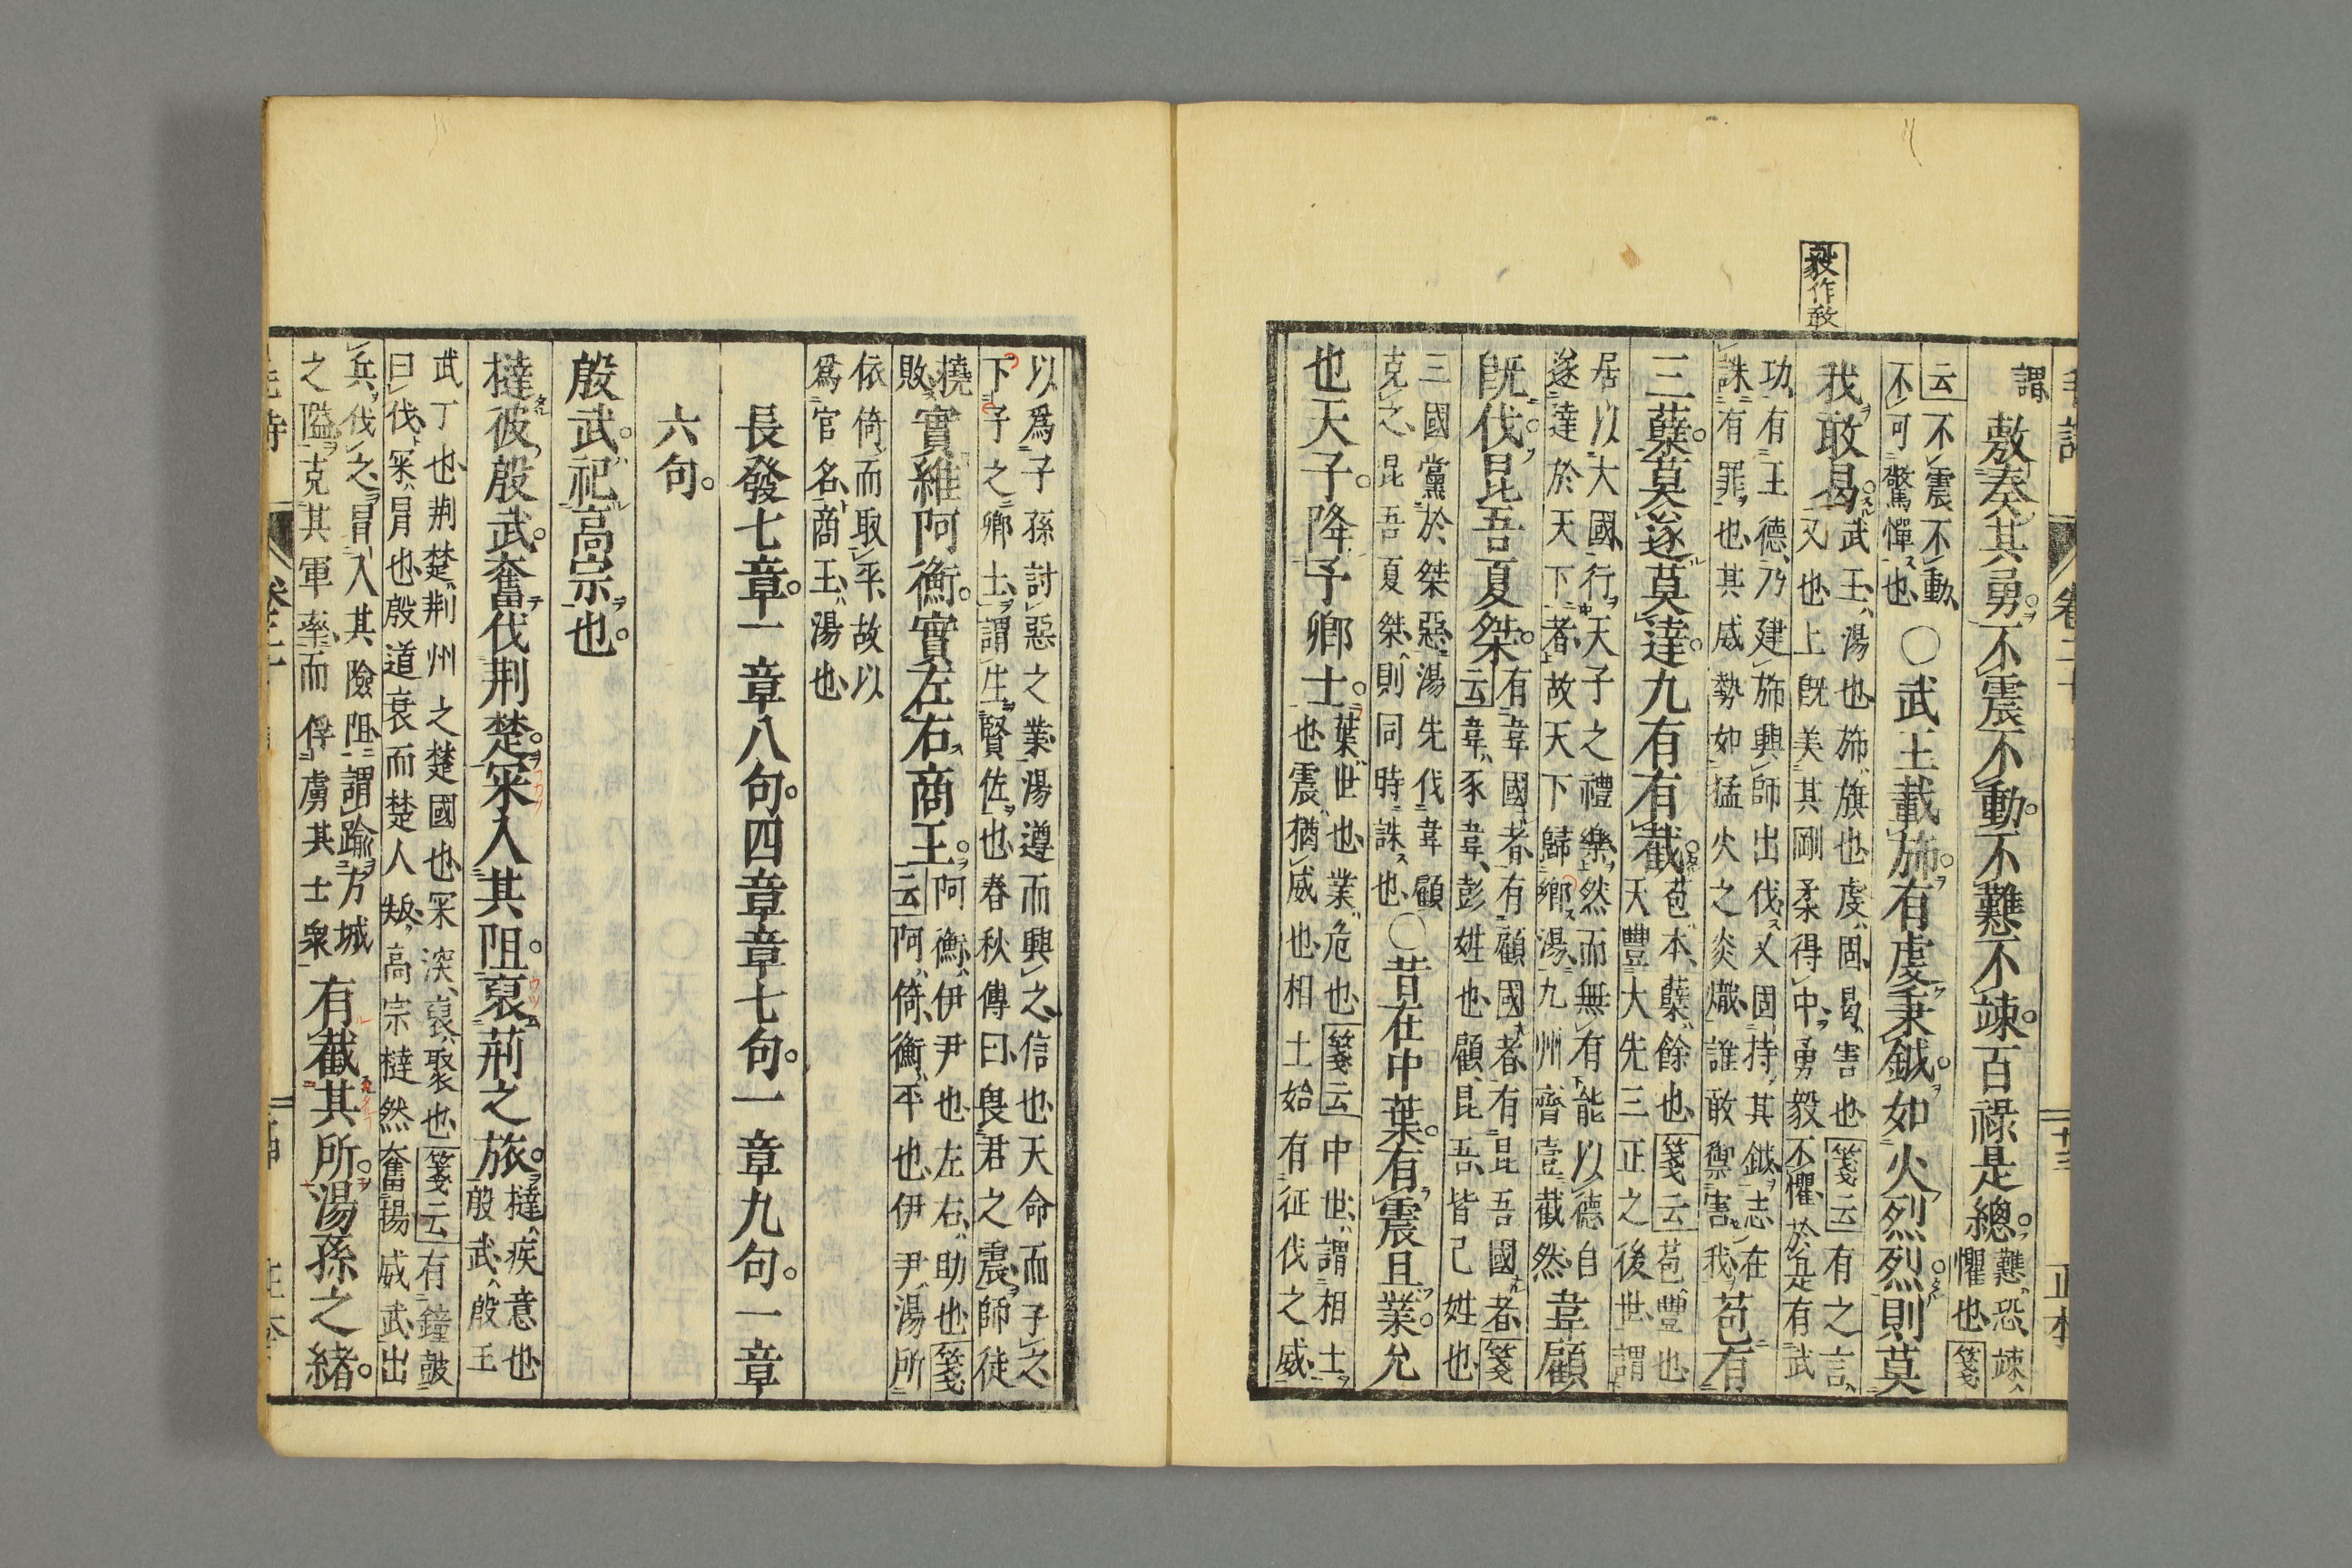 毅作敢
謂
敷奏其勇。不震不動。不難不竦。百祿是總。
難恐竦
懼也箋
云不震不動
不可驚憚也
○武王載斾。有虔秉鉞。如火烈烈。則莫
我敢曷。
武王湯也斾旗也虔固曷害也箋云有之言
又也上旣美其剛柔得中勇毅不懼於是有武
功有王德乃建斾興師出伐又固持其鉞志在
誅有罪也其威勢如猛火之炎熾誰敢禦害我
苞有
三蘖。莫遂莫達。九有有截。
苞本蘖餘也箋云苞豐也
天豐大先三正之後世謂
居以大國行天子之禮樂然而無有能以德自
遂達於天下者故天下歸鄉湯九州齊壹截然
韋顧
旣伐。昆吾夏桀。
有韋國者有顧國者有昆吾國者箋
云韋豕韋彭姓也顧昆吾皆己姓也
三國黨於桀惡湯先伐韋顧
克之昆吾夏桀則同時誅也
○昔在中葉。有震且業。允
也天子。降予卿士。
葉世也業危也箋云中世謂相土
也震猶威也相土始有征伐之威
以爲子孫討惡之業湯遵而興之信也天命而子之
下予之卿士謂生賢佐也春秋傳曰畏君之震師徒
撓
敗
實維阿衡。實左右商王。
阿衡伊尹也左右助也箋
云阿倚衡平也伊尹湯所
依倚而取平故以
爲官名商王湯也
長發七章。一章八句。四章章七句。一章九句。一章
六句。
殷武。祀高宗也。
撻彼殷武。奮伐荆楚。罙入其阻。裒荊之旅。
撻疾意也
殷武殷王
武丁也荆楚荆州之楚國也罙深裒聚也箋云有鐘鼓
曰伐罙冒也殷道衰而楚人叛高宗撻然奮揚威武出
兵伐之冒入其險阻謂踰方城
之隘克其軍率而俘虜其士衆
有截其所。湯孫之緒。